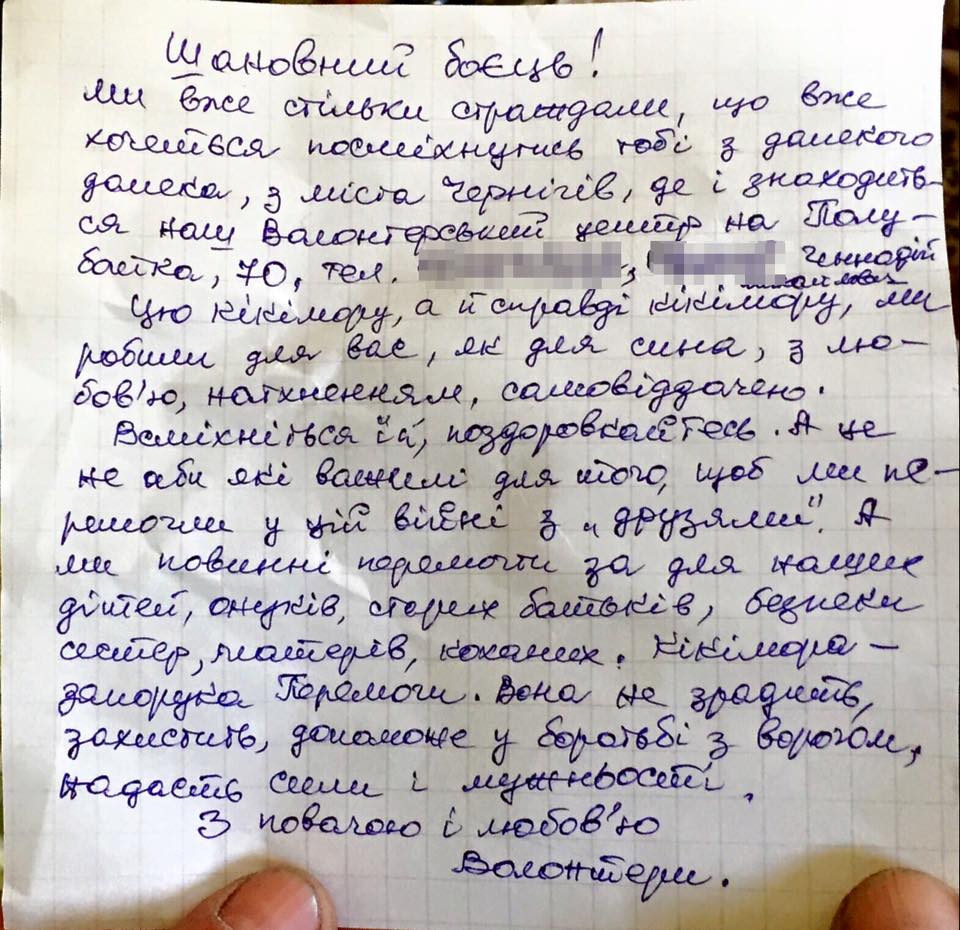 Шановний боєць!
Ми вже стільки страждали, що вже
хочеться посміхнутись тобі з далекого
далека, з міста Чернігів, де і знаходить-
ся наш Волонтерський центр на Полу-
ботка, 70, тел. Геннадій
Михайлович
Цю кікімору, а й справді кікімору, ми
робили для вас, як для сина, з лю-
бов'ю, натхненням, самовіддачено.
Всміхніться їй, поздоровкайтесь. А це
не аби які важилі для того, щоб ми пе-
ремогли у цій війні з „друзями". А
ми повинні перемогти за для наших
дітей, онуків, старих батьків, безпеки
сестер, матерів, коханих. Кікімора –
запорука Перемоги. Вона не зрадить,
захистить, допоможе у боротьбі з ворогом,
надасть сили і мужньості.
З повагою і любов'ю
Волонтери.